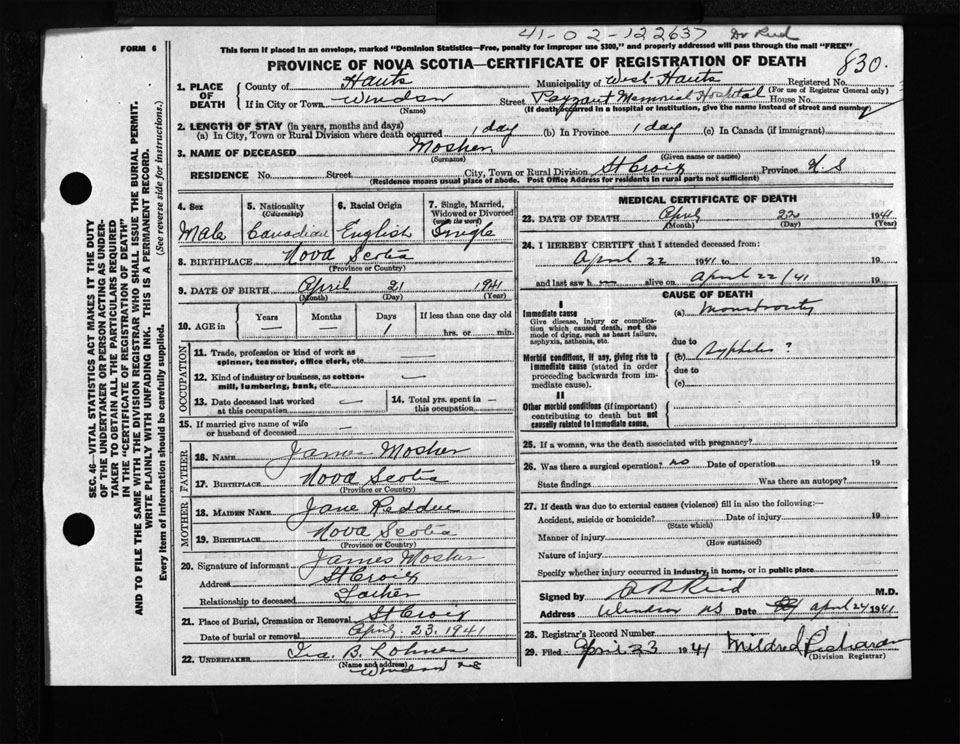 41-02-122637 Dr Reid
FORM 6
This form if placed in an envelope, marked "Dominion Statistics—Free, penalty for improper use $300," and properly addressed will pass through the mail "FREE"
PROVINCE OF NOVA SCOTIA—CERTIFICATE OF REGISTRATION OF DEATH
830.
1. PLACE OF DEATH
County of Hants Municipality of West Hants Registered No.
(For use of Registrar General only)
If in City or Town Windsor Street Payzant Memorial Hospital House No.
(Name) (If death occurred in a hospital or institution, give the name instead of street and number)
2. LENGTH OF STAY (in years, months and days)
(a) In City, Town or Rural Division where death occurred 1 day (b) In Province 1 day (c) In Canada (if immigrant)
3. NAME OF DECEASED Mosher
(Surname) (Given name or names)
RESIDENCE No. Street City, Town or Rural Division St Croix Province N.S
(Residence means usual place of abode. Post Office Address for residents in rural parts not sufficient)
4. Sex Male
5. Nationality (Citizenship) Canadian
6. Racial Origin English
7. Single, Married, Widowed or Divorced (write the word) Single
8. BIRTHPLACE Nova Scotia
(Province or Country)
9. DATE OF BIRTH April 21 1941
(Month) (Day) (Year)
10. AGE in Years Months Days If less than one day old
1 hrs. or min.
OCCUPATION
11. Trade, profession or kind of work as spinner, teamster, office clerk, etc. —
12. Kind of industry or business, as cotton-mill, lumbering, bank, etc. —
13. Date deceased last worked at this occupation —
14. Total yrs. spent in this occupation —
15. If married give name of wife or husband of deceased —
FATHER
16. NAME James Mosher
17. BIRTHPLACE Nova Scotia
(Province or Country)
MOTHER
18. MAIDEN NAME Jane
19. BIRTHPLACE Nova Scotia
(Province or Country)
20. Signature of informant James Mosher
Address St Croix
Relationship to deceased Father
21. Place of Burial, Cremation or Removal St Croix
Date of burial or removal April 23. 1941
22. UNDERTAKER Ira B. Lohnes
(Name and address)
Windsor NS
MEDICAL CERTIFICATE OF DEATH
23. DATE OF DEATH April 22 1941
(Month) (Day) (Year)
24. I HEREBY CERTIFY that I attended deceased from:
April 22 1941 to 19
and last saw h alive on April 22/41 19
CAUSE OF DEATH
I
Immediate cause
Give disease, injury or complication which caused death, not the mode of dying, such as heart failure, asphyxia, asthenia, etc.
(a) Monstrosity
due to
Morbid conditions, if any, giving rise to immediate cause (stated in order proceeding backwards from immediate cause).
(b) Syphilis ?
due to
(c)
II
Other morbid conditions (if important) contributing to death but not causally related to immediate cause.
25. If a woman, was the death associated with pregnancy?
26. Was there a surgical operation? no Date of operation 19
State findings Was there an autopsy?
27. If death was due to external causes (violence) fill in also the following:—
Accident, suicide or homicide? Date of injury 19
(State which)
Manner of injury
(How sustained)
Nature of injury
Specify whether injury occurred in industry, in home, or in public place
Signed by Reid M.D.
Address Windsor NS Date April 24 1941
28. Registrar's Record Number
29. Filed April 23 1941 Mildred
(Division Registrar)
SEC. 46—VITAL STATISTICS ACT MAKES IT THE DUTY
OF THE UNDERTAKER OR PERSON ACTING AS UNDER-
TAKER TO OBTAIN ALL THE PARTICULARS REQUIRED
IN THE "CERTIFICATE OF REGISTRATION OF DEATH"
AND TO FILE THE SAME WITH THE DIVISION REGISTRAR WHO SHALL ISSUE THE BURIAL PERMIT.
WRITE PLAINLY WITH UNFADING INK. THIS IS A PERMANENT RECORD.
Every item of information should be carefully supplied. (See reverse side for instructions.)